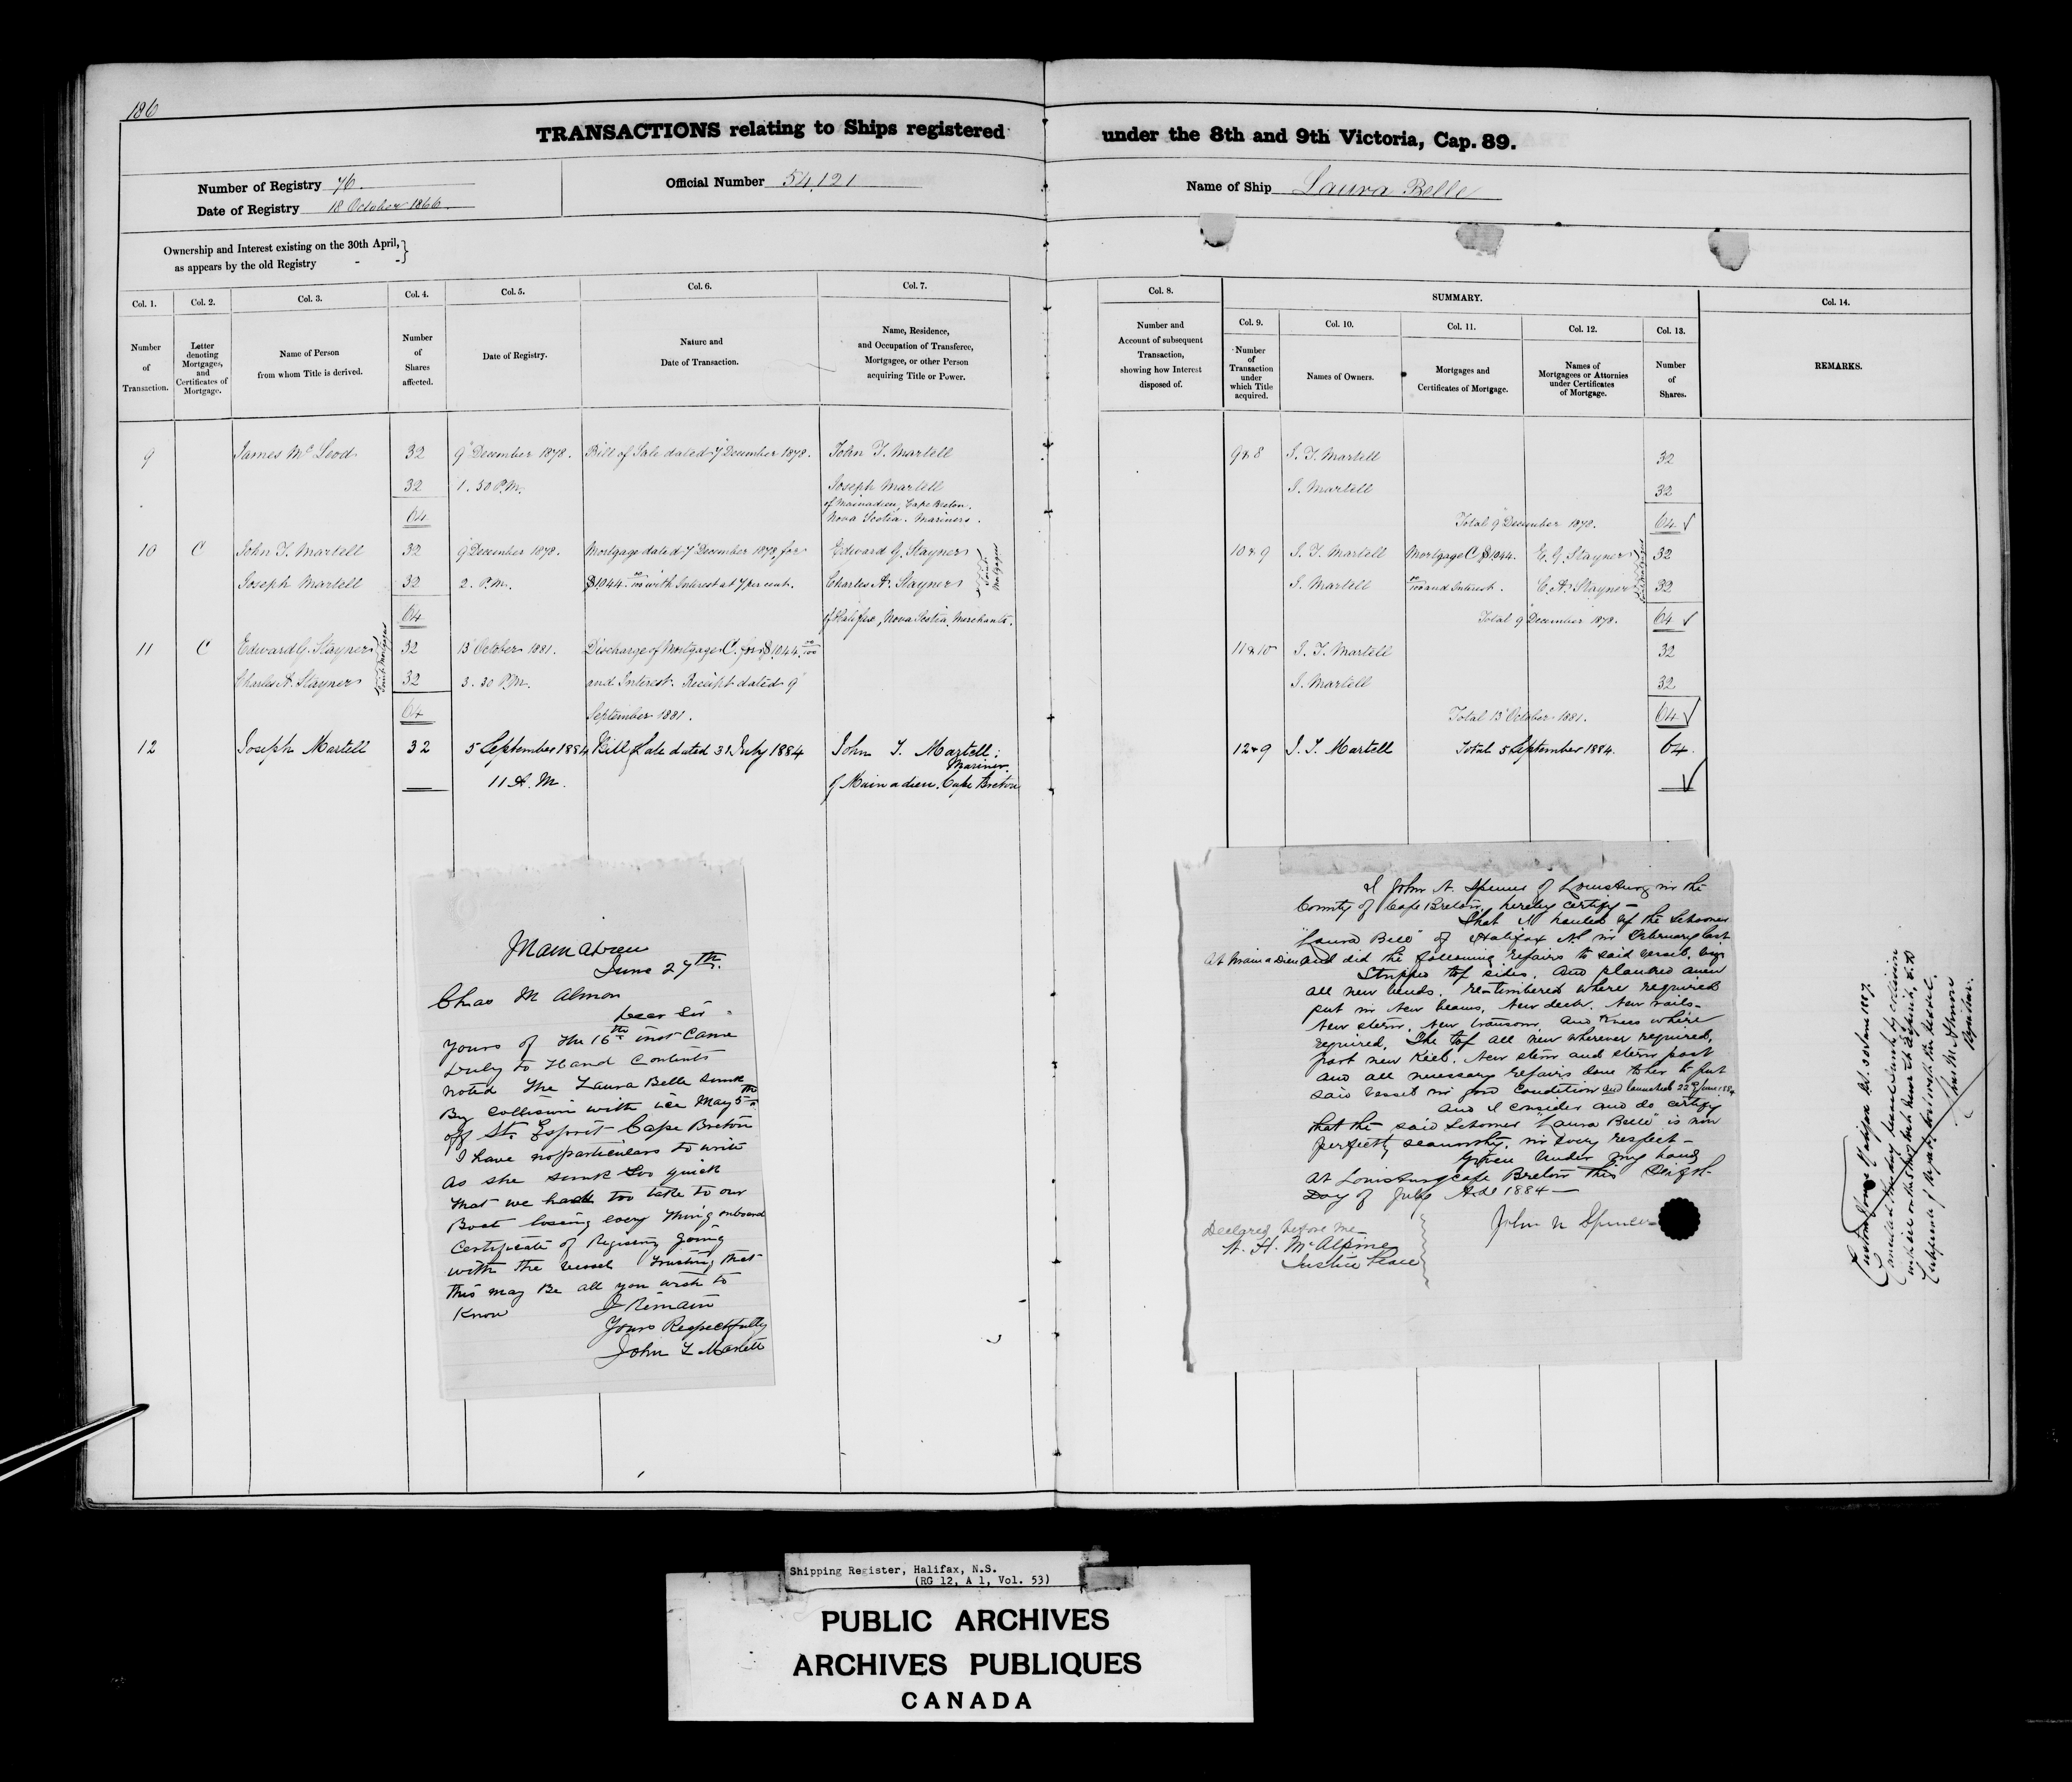 186
TRANSACTIONS relating to Ships registered under the 8th and 9th Victoria, Cap. 89.
Number of Registry 76.
Date of Registry 18 October 1866.
Official Number 54,121
Name of Ship Laura Belle
Ownership and Interest existing on the 30th April, }
as appears by the old Registry - -
Col. 1. Col. 2. Col. 3. Col. 4. Col. 5. Col. 6. Col. 7. Col. 8. SUMMARY. Col. 14.
Col. 9. Col. 10. Col. 11. Col. 12. Col. 13.
Number of Transaction.
Letter denoting Mortgages, and Certificates of Mortgage.
Name of Person from whom Title is derived.
Number of Shares affected.
Date of Registry.
Nature and Date of Transaction.
Name, Residence, and Occupation of Transferee, Mortgagee, or other Person acquiring Title or Power.
Number and Account of subsequent Transaction, showing how Interest disposed of.
Number of Transaction under which Title acquired.
Names of Owners.
Mortgages and Certificates of Mortgage.
Names of Mortgagees or Attornies under Certificates of Mortgage.
Number of Shares.
REMARKS.
9 James McLeod 32 9" December 1878. Bill of Sale dated 7 December 1878. John T. Martell 9 & 8 J. T. Martell 32
32 1.50 P.M. Joseph Martell J. Martell 32
of Mainadieu, Cape Breton.
64 Nova Scotia. Mariners. Total 9" December 1878. 64 ✓
10 C John T. Martell 32 9" December 1878. Mortgage dated 7" December 1878 for Edward G. Stayner 10 & 9 J. T. Martell Mortgage C $1044. E. G. Stayner 32
Joseph Martell 32 2. P.M. $1044 00/100 with Interest at 7 per cent. Charles A. Stayner Joint Mortgagees J. Martell 00/100 and Interest. C. A. Stayner Joint Mortgagees 32
64 of Halifax, Nova Scotia, Merchants. Total 9" December 1878. 64 ✓
11 C Edward G. Stayner 32 13" October 1881. Discharge of Mortgage C. for $1044. 00/100 11 & 10 J. T. Martell 32
Charles A. Stayner Joint Mortgagees 32 3.30 P.M. and Interest. Receipt dated 9" J. Martell 32
64 September 1881. Total 13" October 1881. 64 ✓
12 Joseph Martell 32 5 September 1884 Bill of Sale dated 31 July 1884 John T. Martell; 12 & 9 J. T. Martell Total 5 September 1884. 64.
Mariner.
11 A.M. of Mainadieu. Cape Breton ✓
Mainadieu
June 27th.
Chas M Almon
Dear Sir -
Yours of the 16th inst Came
Duly to Hand Contents
Noted The Laura Belle Sunk
By Collision with ice May 5th
off St. Esprit Cape Breton
I have no particulars to write
As she sunk so quick
that we had too take to our
Boat losing every thing onboard
Certificate of Registry going
with the vessel Trusting that
this may Be all you wish to
Know
I Remain
Yours Respectfully
John T Martell
I John N. Spencer of Louisburg in the
County of Cape Breton, hereby certify -
That I hauled up the Schooner
"Laura Bell" of Halifax N.S in February last
at Main a Dieu and did the following repairs to said vessel, viz
Stripped top sides. And planked anew
all new bends. re-timbered where required
put in New beams, New deck. New rails -
New stern. New transom, and Knees where
required, The top all new wherever required,
part new Keel. New stem and stern post
and all necessary repairs done to her to put
said vessel in good condition and launched 22d June 1884
And I consider and do certify
that the said Schooner "Laura Belle" is now
perfectly seaworthy. in every respect -
Given Under my hand
At Louisburg Cape Breton this Eight
Day of July A.d. 1884 -
John N Spencer
Declared before me
H. McAlpine
Justice Peace
Custom House Halifax N.S. 30 June 1887.
Cancelled this day Vessel sunk by collision
with ice on the 5 May last near St Esprit, C.B.
Certificate of Registry lost with the Vessel.
Chas M Almon
Registrar.
Shipping Register, Halifax, N.S.
(RG 12, A 1, Vol. 53)
PUBLIC ARCHIVES
ARCHIVES PUBLIQUES
CANADA